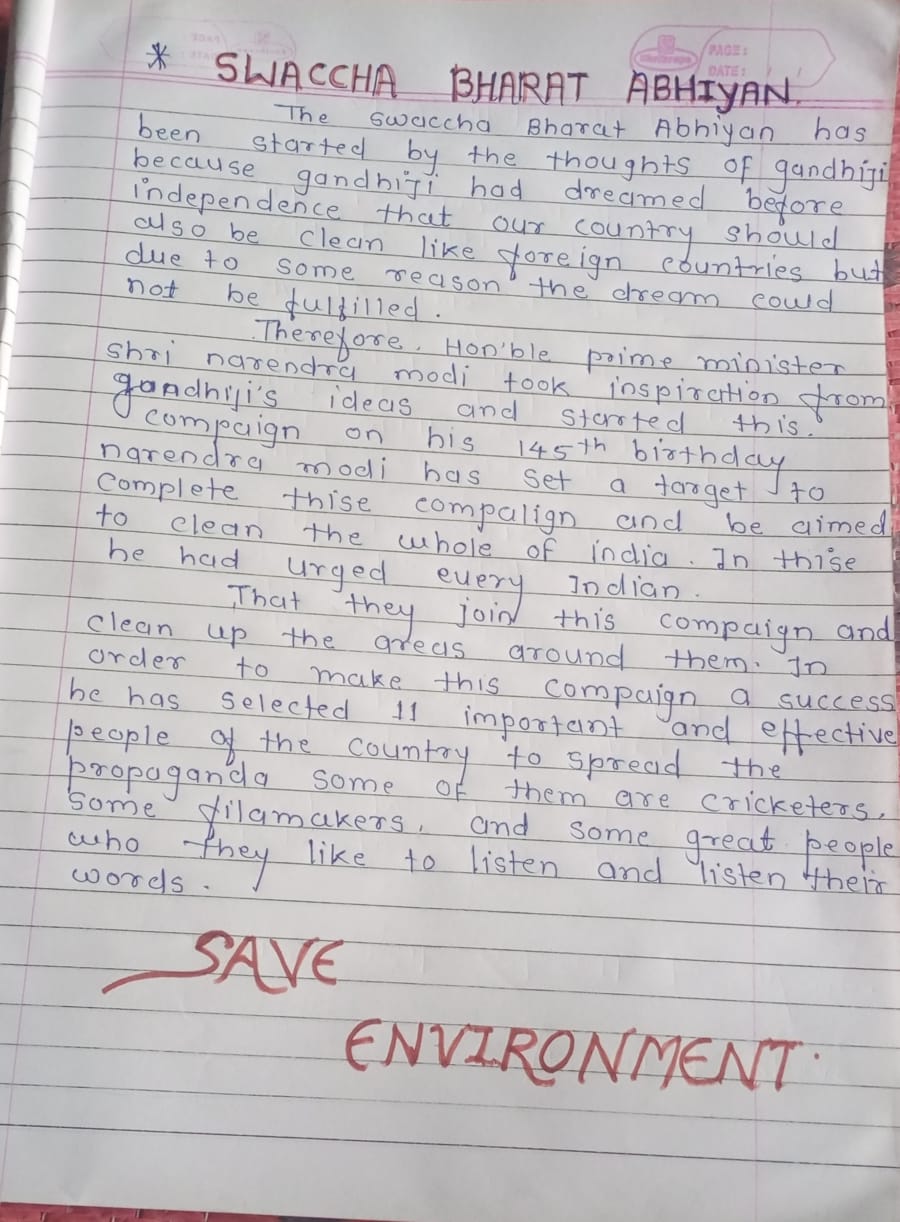 PAGE:
DATE:
* SWACCHA BHARAT ABHIYAN.
The Swaccha Bharat Abhiyan has
been started by the thoughts of gandhiji
because gandhiji had dreamed before
independence that our country should
also be clean like foreign countries but
due to some reason the dream could
not be fulfilled.
Therefore. Hon'ble prime minister
shri narendra modi took inspiration from
gandhiji's ideas and started this.
compaign on his 145th birthday
narendra modi has set a target to
complete thise compalign and be aimed
to clean the whole of india. In thise
he had urged every Indian.
That they join this compaign and
clean up the areas around them. In
order to make this compaign a success
he has selected 11 important and effective
people of the country to spread the
propaganda some of them are cricketers,
some filamakers, and some great people
who they like to listen and listen their
words.
SAVE
ENVIRONMENT.